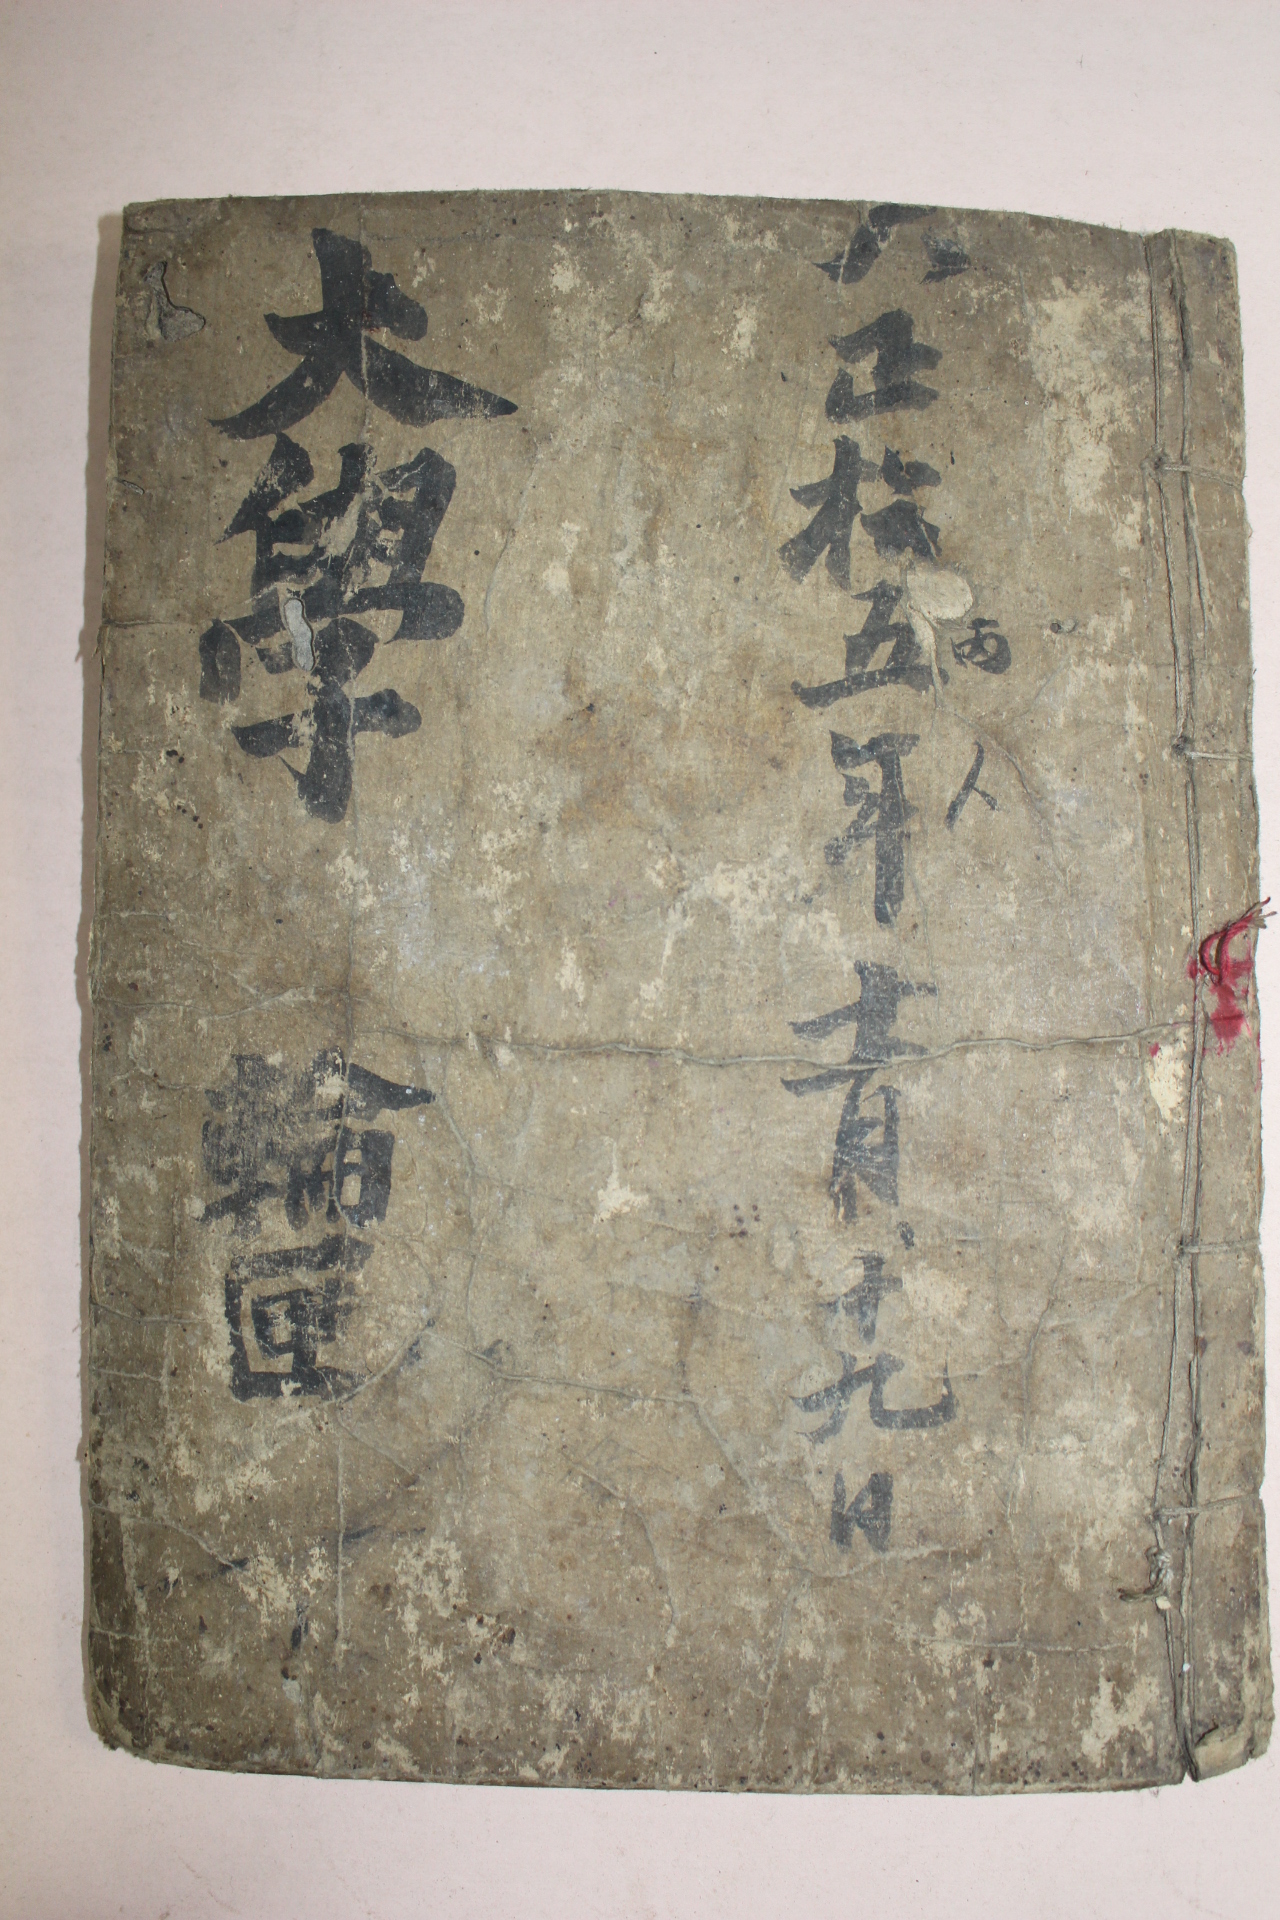 大正拾五年十二月十九日
丙人
大學 輪匣